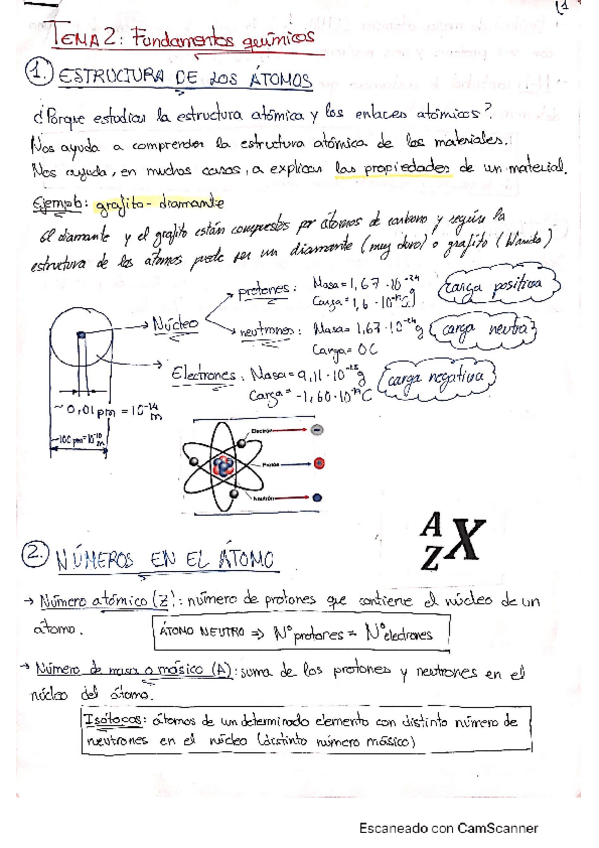 (1
TEMA 2: Fundamentos químicos
1. ESTRUCTURA DE LOS ÁTOMOS
¿Porque estudiar la estructura atómica y los enlaces atómicos?
Nos ayuda a comprender la estructura atómica de los materiales.
Nos ayuda, en muchos casos, a explicar las propiedades de un material.
Ejemplo: grafito - diamante
El diamante y el grafito están compuestos por átomos de carbono y según la
estructura de los átomos puede ser un diamante (muy duro) o grafito (blando)
Núcleo
protones: Masa = 1,67·10⁻²⁴ g
Carga = 1,6·10⁻¹⁹ C
carga positiva
neutrones: Masa = 1,67·10⁻²⁴ g
Carga = 0C
carga neutra
Electrones: Masa = 9,11·10⁻²⁸ g
Carga = -1,60·10⁻¹⁹ C
carga negativa
~0,01 pm = 10⁻¹⁴ m
~100 pm = 10⁻¹⁰ m
Electrón
Protón
Neutrón
A
Z X
2. NÚMEROS EN EL ÁTOMO
→ Número atómico (Z): número de protones que contiene el núcleo de un
átomo.
ÁTOMO NEUTRO => Nº protones = Nº electrones
→ Número de masa o másico (A): suma de los protones y neutrones en el
núcleo del átomo.
Isótopos: átomos de un determinado elemento con distinto número de
neutrones en el núcleo (distinto número másico)
Escaneado con CamScanner